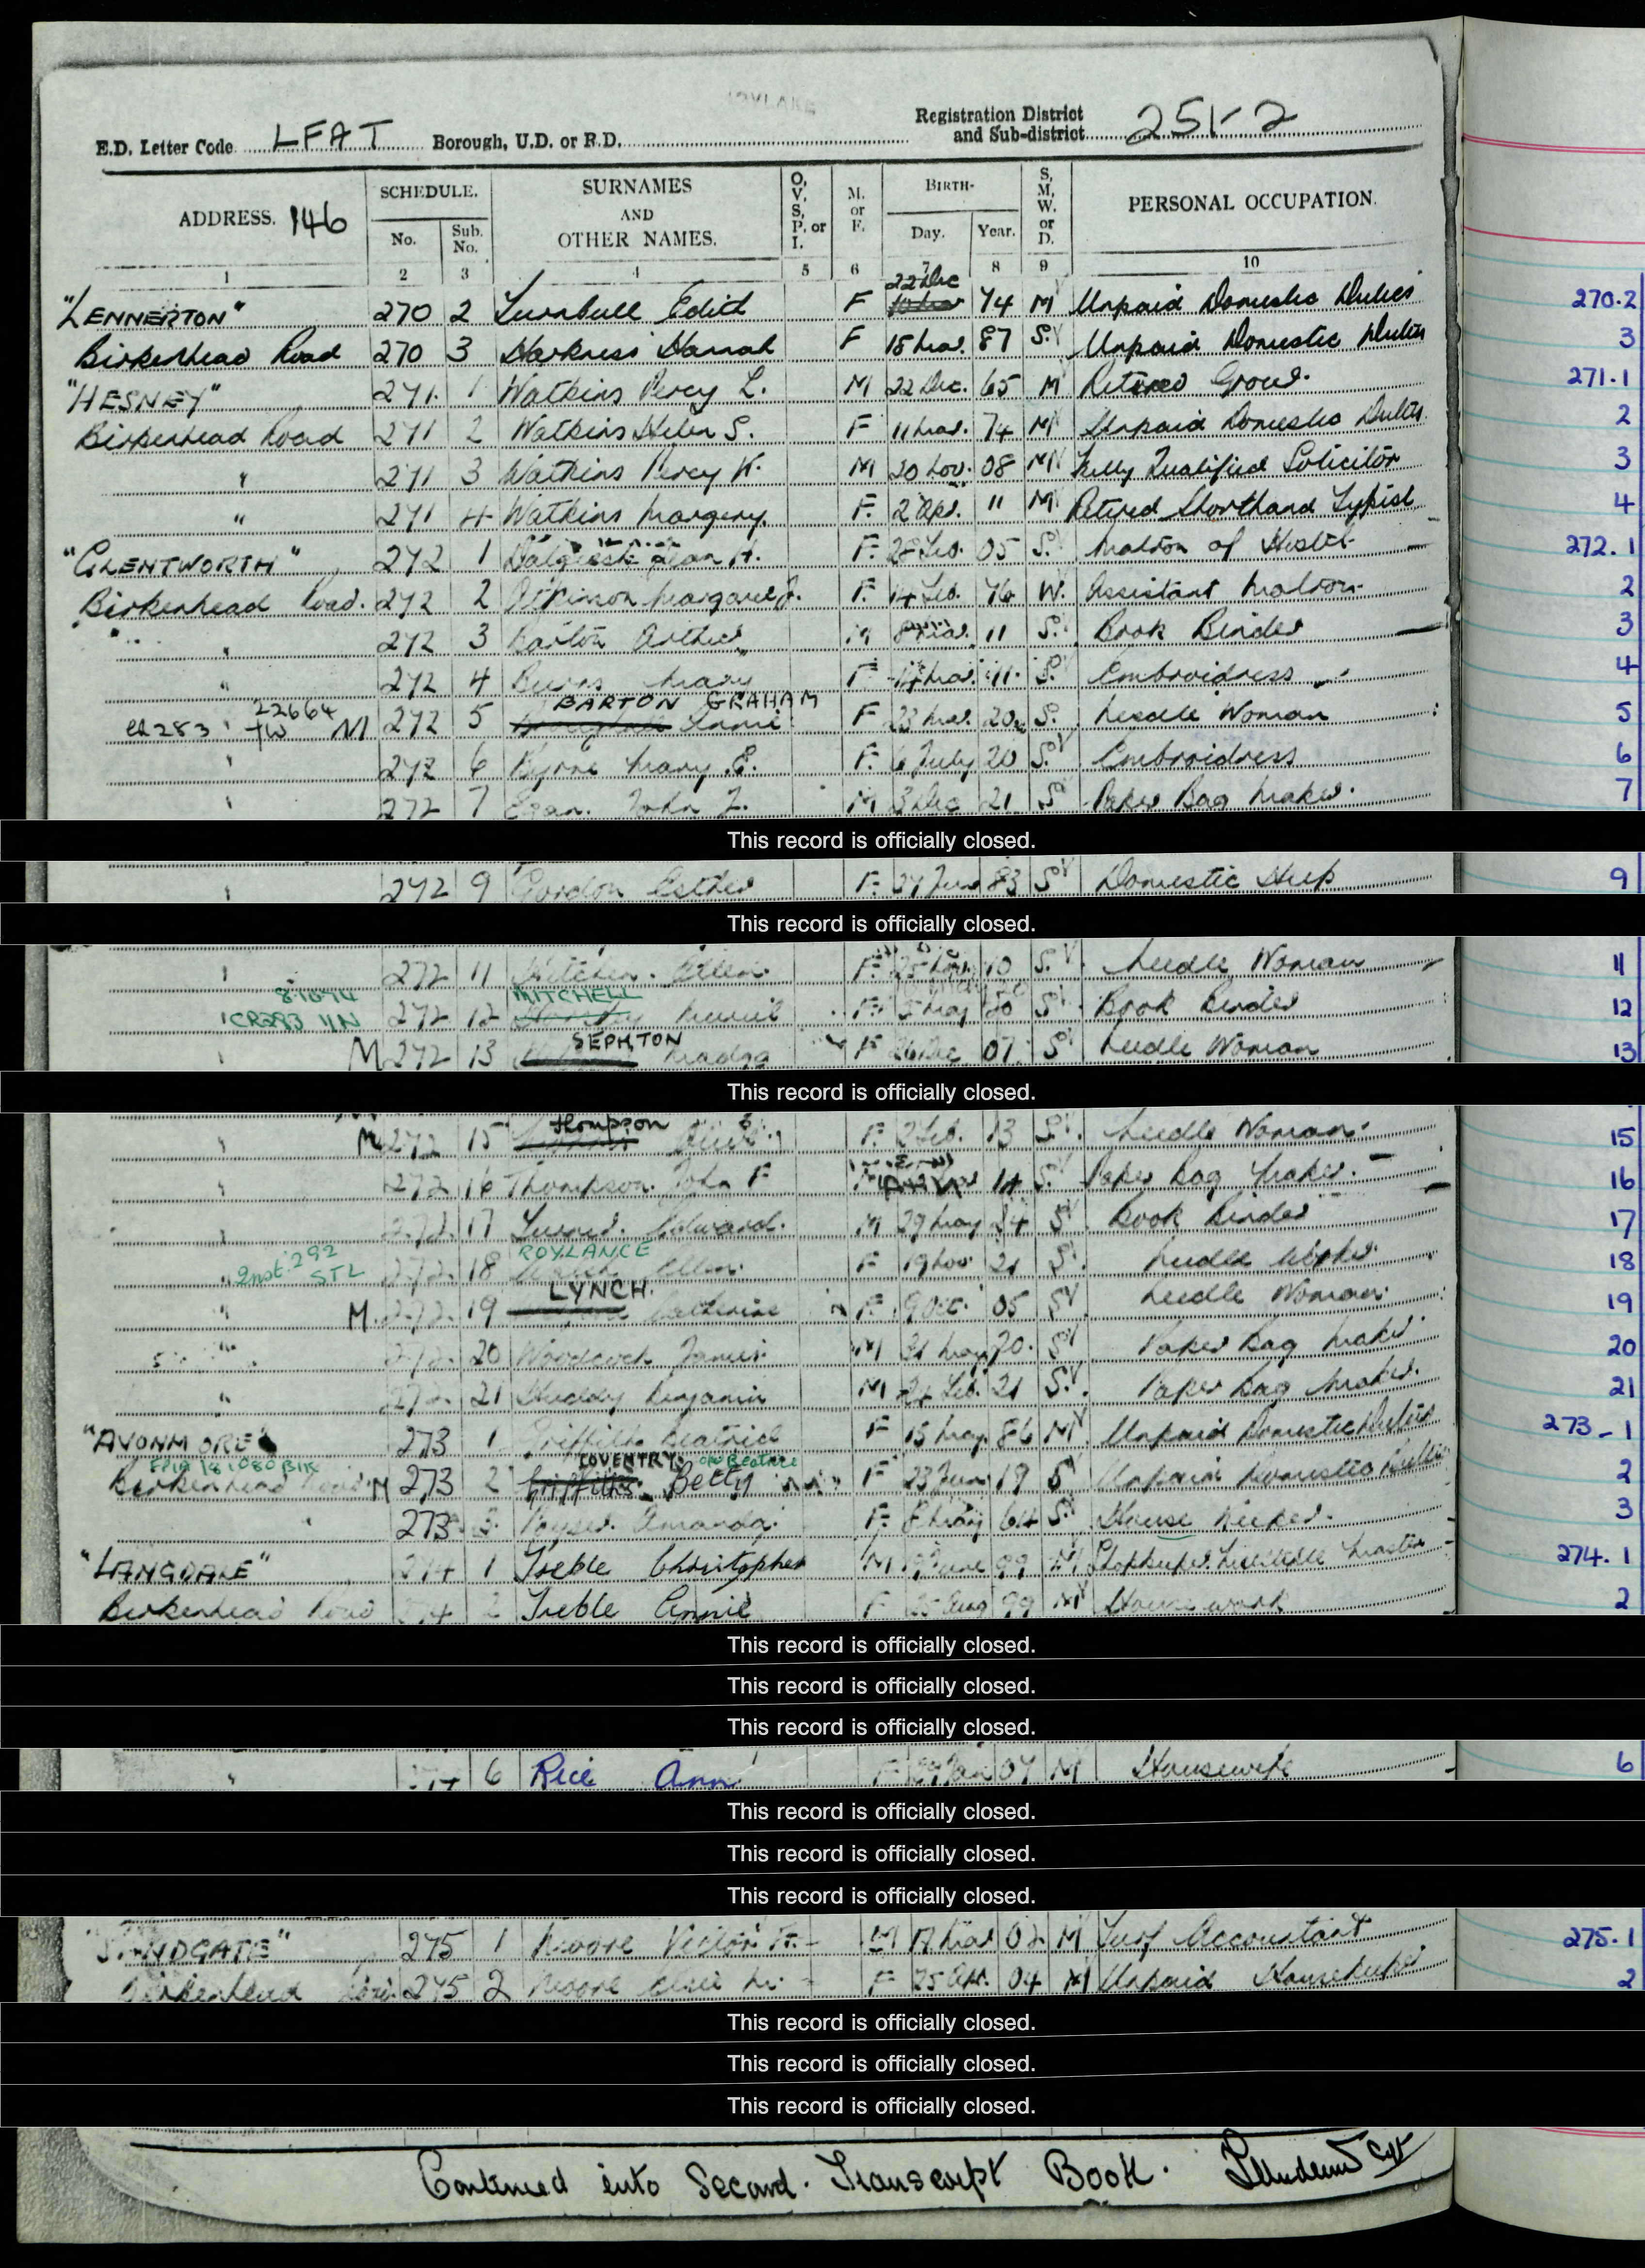 HOYLAKE
E.D. Letter Code LFAT Borough, U.D. or R.D. Registration District and Sub-district 251-2
ADDRESS. 146 SCHEDULE. No. Sub. No. SURNAMES AND OTHER NAMES. O, V, S, P, or I. M. or F. BIRTH- Day. Year. S, M, W. or D. PERSONAL OCCUPATION.
1 2 3 4 5 6 7 8 9 10
22 Dec
"LENNERTON" 270 2 Turnbull Edith F 74 M Unpaid Domestic Duties 270.2
Birkenhead Road 270 3 Harkness Hannah F 18 Mar. 87 S. Unpaid Domestic Duties 3
"HESNEY" 271. 1 Watkins Percy L. M 22 Dec. 65 M Retired Grocer. 271.1
Birkenhead Road 271 2 Watkins Helen S. F 11 Mar. 74 M Unpaid Domestic Duties. 2
" 271 3 Watkins Percy K. M 20 Nov. 08 M Fully Qualified Solicitor 3
" 271 4 Watkins Margery. F. 2 Apr. 11 M Retired Shorthand Typist 4
"GLENTWORTH" 272 1 Jean H. F. 28 Feb. 05 S. Matron of Hostel 272.1
Birkenhead Road. 272 2 Atkinson Margaret J. F. 14 Feb. 76 W. Assistant Matron 2
" 272 3 Barton Arthur M Mar. 11 S. Book Binder 3
" 272 4 Burns Mary F 17 Mar. 11. S. Embroidress 4
BARTON GRAHAM
22664
CR283 TW M 272 5 Annie F 23 Mar. 20 S. Needle Woman 5
" 272 6 Byrne Mary E. F. 6 July 20 S. Embroidress 6
" 272 7 Egan. John M 3 Dec 21 S Paper Bag Maker. 7
This record is officially closed.
" 272 9 Gordon Esther F. 27 Jun 83 S Domestic Help 9
This record is officially closed.
" 272 11 Ellen. F. 25 Nov. 10 S. Needle Woman 11
MITCHELL
CR283 272 12 Muriel F. 5 May 20 S Book Binder 12
SEPHTON
M 272 13 Madga F 26 Dec 07 S Needle Woman 13
This record is officially closed.
thompson
" M 272 15 F. 2 Feb. 13 S. Needle Woman. 15
" 272 16 Thompson. John F M 14 S. Paper Bag Maker. 16
" 272 17 Turner. Edward. M 29 May 24 S Book Binder 17
ROYLANCE
" Inst. 292 STL 272 18 Ellen. F 19 Nov 21 S. Needle Worker. 18
LYNCH.
" M. 272. 19 Catherine F. 9 Oct. 05 S Needle Woman. 19
" 272. 20 Woodcock James. M 31 May 20. S Paper Bag Maker. 20
" 272. 21 Benjamin M 24 Feb. 21 S. Paper Bag Maker. 21
"AVONMORE" 273 1 Griffiths Beatrice F 15 May. 86 M Unpaid Domestic Duties 273-1
COVENTRY. or Beatrice
Birkenhead Road M 273 2 Griffiths. Betty F 23 Jun 19 S Unpaid Domestic Duties 2
" 273 3. Amanda. F. 8 May 64 S. House Keeper. 3
"LANGDALE" 274 1 Treble Christopher M. 99 M 274.1
Birkenhead Road 274 2 Treble Annie F 25 Aug 99 M House work 2
This record is officially closed.
This record is officially closed.
This record is officially closed.
" 274 6 Rice Ann F 29 Jan 07 M Housewife 6
This record is officially closed.
This record is officially closed.
This record is officially closed.
"SANDGATE" 275 1 Moore Victor M 17 Mar 02 M Turf Accountant 275.1
Birkenhead Road 275 2 Moore Elsie M. F 25 Apr. 04 M Unpaid Housekeeper 2
This record is officially closed.
This record is officially closed.
This record is officially closed.
Continued into Second. Transcript Book.